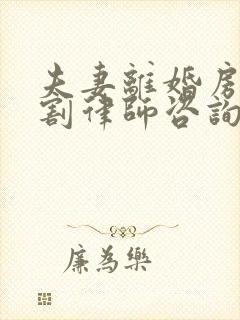 夫妻離婚房
割律師咨詢
廉為樂